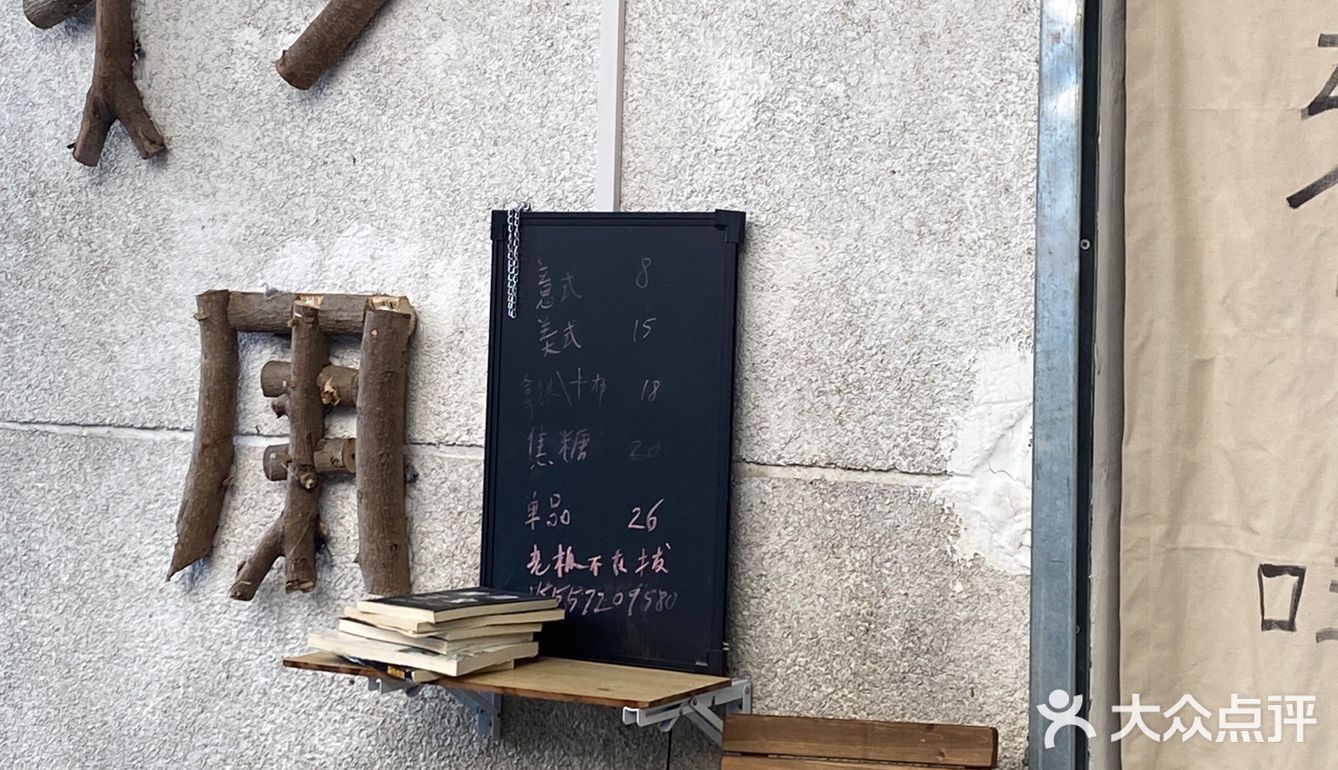 意式 8
美式 15
拿铁\卡布 18
焦糖 20
单品 26
老板不在 拨
15557209580
大众点评